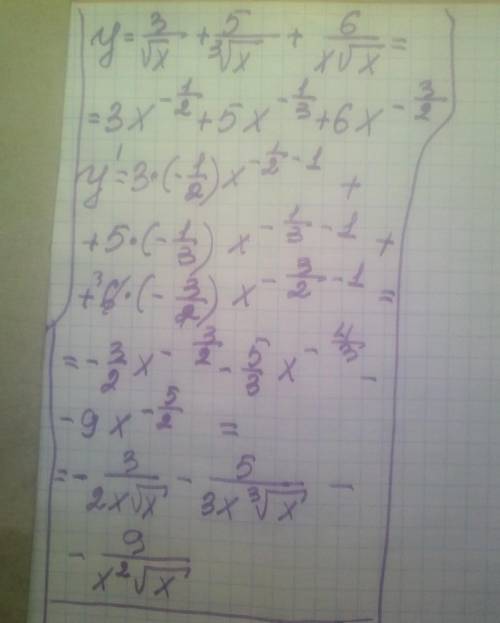 y = 3/√x + 5/∛x + 6/x√x =
= 3x^(-1/2) + 5x^(-1/3) + 6x^(-3/2)
y' = 3·(-1/2)x^(-1/2 - 1) +
+ 5·(-1/3) x^(-1/3 - 1) +
+ ³6·(-3/2) x^(-3/2 - 1) =
= -3/2 x^(-3/2) - 5/3 x^(-4/3) -
- 9x^(-5/2) =
= - 3/2x√x - 5/3x∛x -
- 9/x²√x